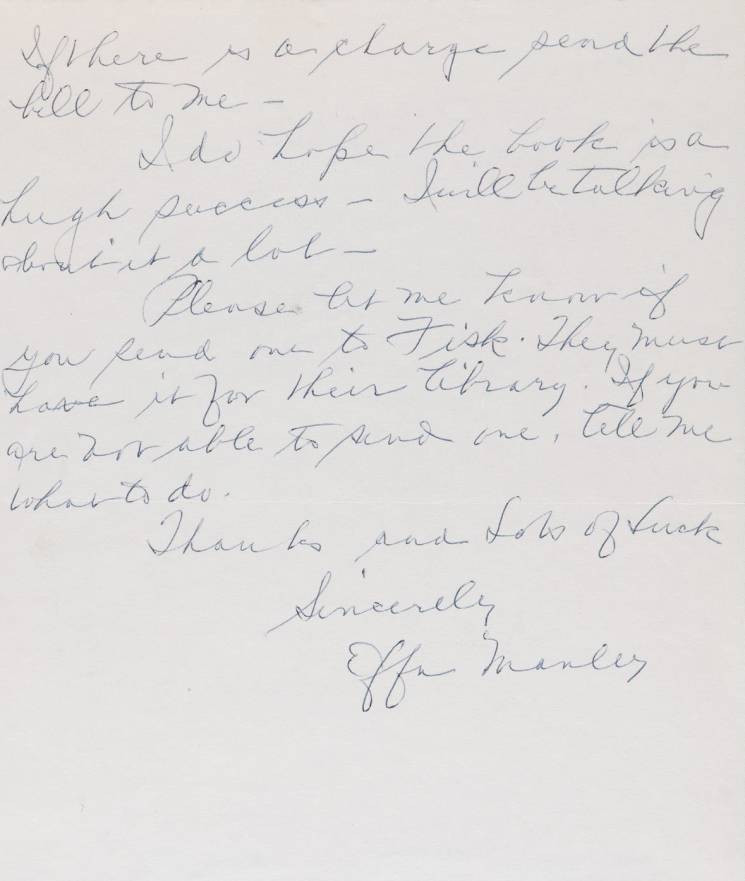 If there is a charge send the
bill to me -
I do hope the book is a
hugh success - I will be talking
about it a lot -
Please let me know if
you send one to Fisk. They must
have it for their library. If you
are not able to send one, tell me
what to do.
Thanks and Lots of Luck
Sincerely
Effa Manley